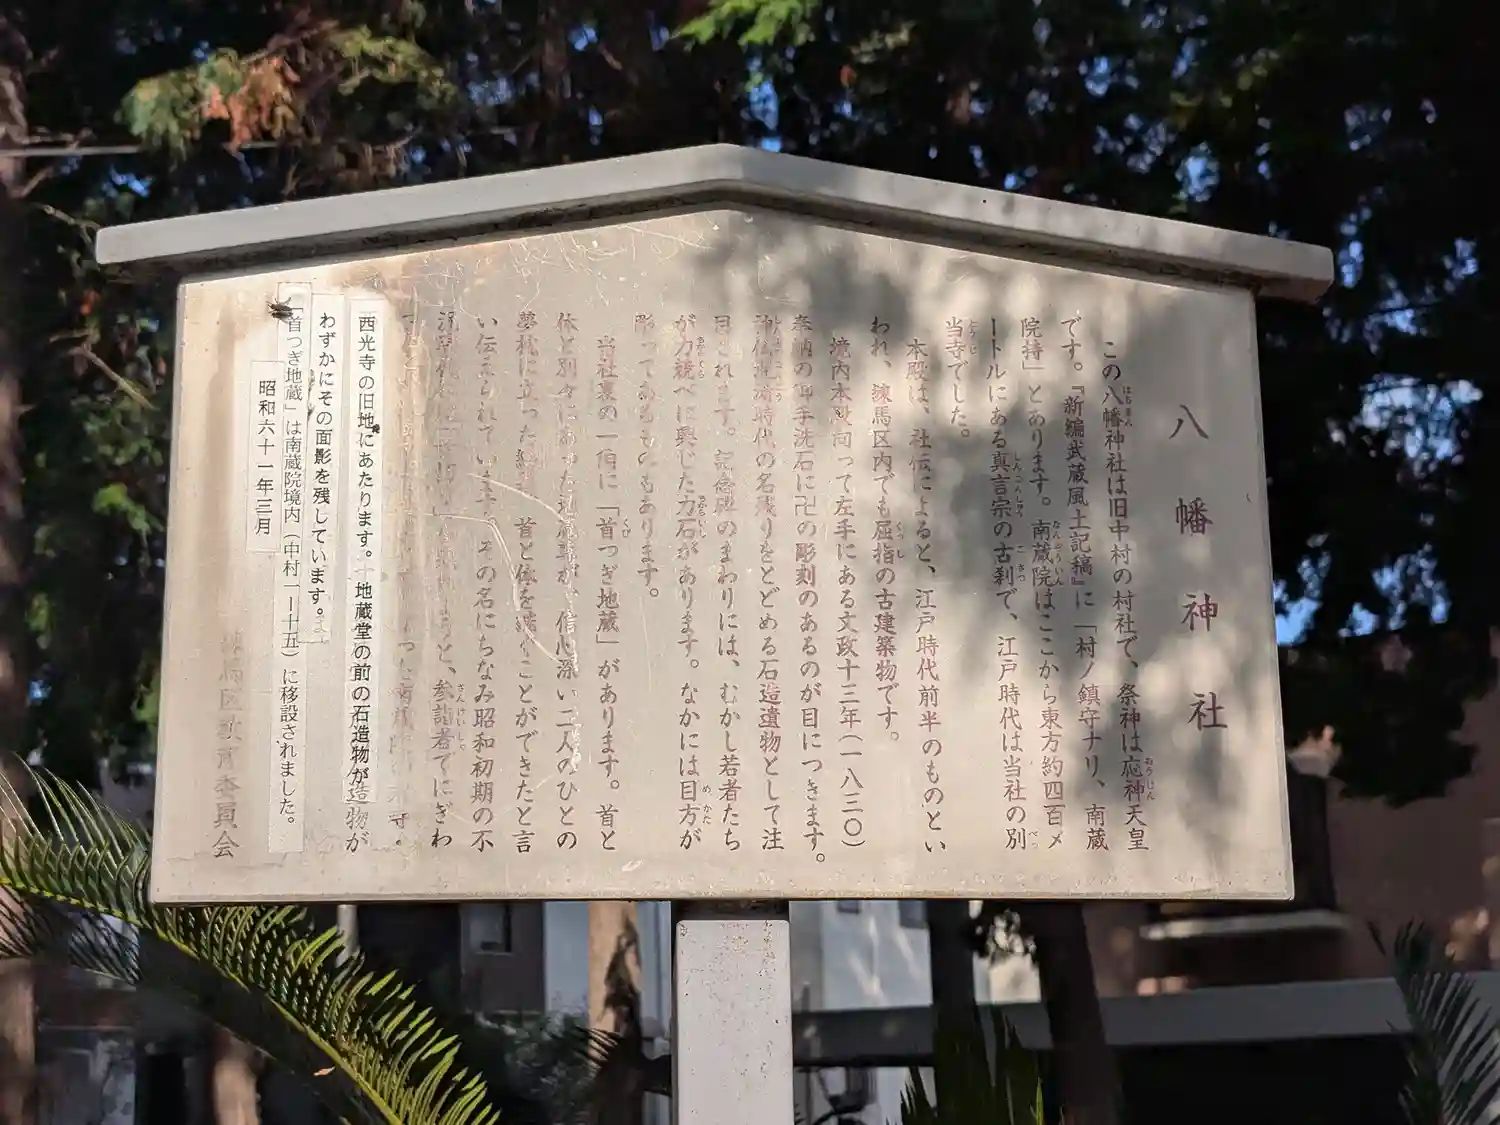 八幡神社
この八幡神社は旧中村の村社で、祭神は応神天皇
です。『新編武蔵風土記稿』に「村ノ鎮守ナリ、南蔵
院持」とあります。南蔵院はここから東方約四百メ
ートルにある真言宗の古刹で、江戸時代は当社の別
当寺でした。
本殿は、社伝によると、江戸時代前半のものとい
われ、練馬区内でも屈指の古建築物です。
境内本殿向って左手にある文政十三年(一八三〇)
奉納の御手洗石に卍の彫刻のあるのが目につきます。
神仏混淆時代の名残りをとどめる石造遺物として注
目されます。記念碑のまわりには、むかし若者たち
が力競べに興じた力石があります。なかには目方が
彫ってあるものもあります。
当社裏の一角に「首つぎ地蔵」があります。首と
体と別々にあった地蔵尊が、信心深い二人のひとの
夢枕に立った結果、首と体を継ぐことができたと言
い伝えられています。その名にちなみ昭和初期の不
と、参詣者でにぎわ
西光寺の旧地にあたります。地蔵堂の前の石造物が
わずかにその面影を残しています。
「首つぎ地蔵」は南蔵院境内(中村一ー十五)に移設されました。
昭和六十一年三月
練馬区教育委員会